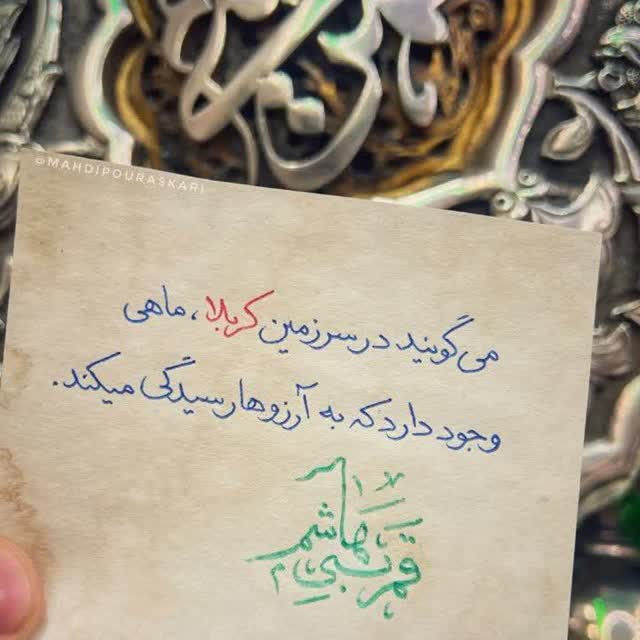 @MAHDIPOURASKARI
می‌گویند در سرزمین کربلا، ماهی
وجود دارد که به آرزوها رسیدگی میکند.
یا قمر بنی هاشم